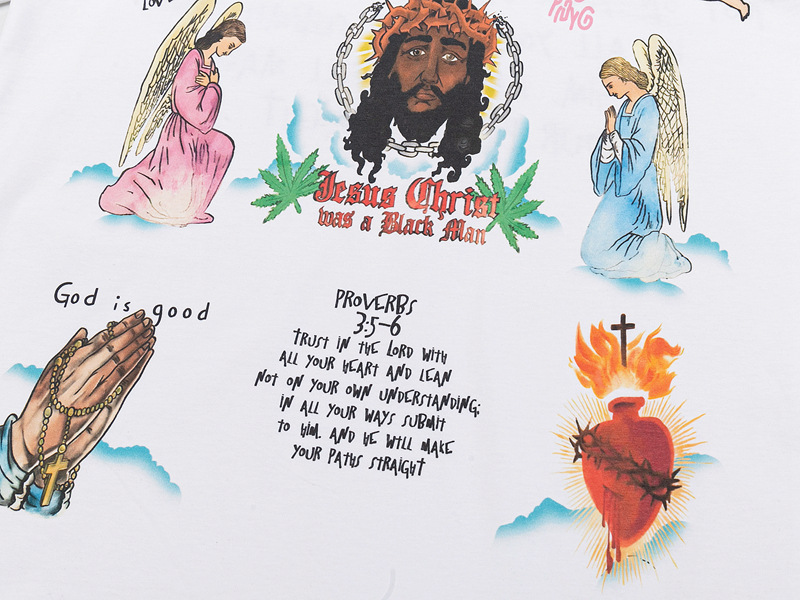 Jesus Christ
was a Black Man
God is good
PROVERBS
3:5-6
TRUST IN THE LORD WITH
ALL YOUR HEART AND LEAN
NOT ON YOUR OWN UNDERSTANDING;
IN ALL YOUR WAYS SUBMIT
TO HIM. AND HE WILL MAKE
YOUR PATHS STRAIGHT